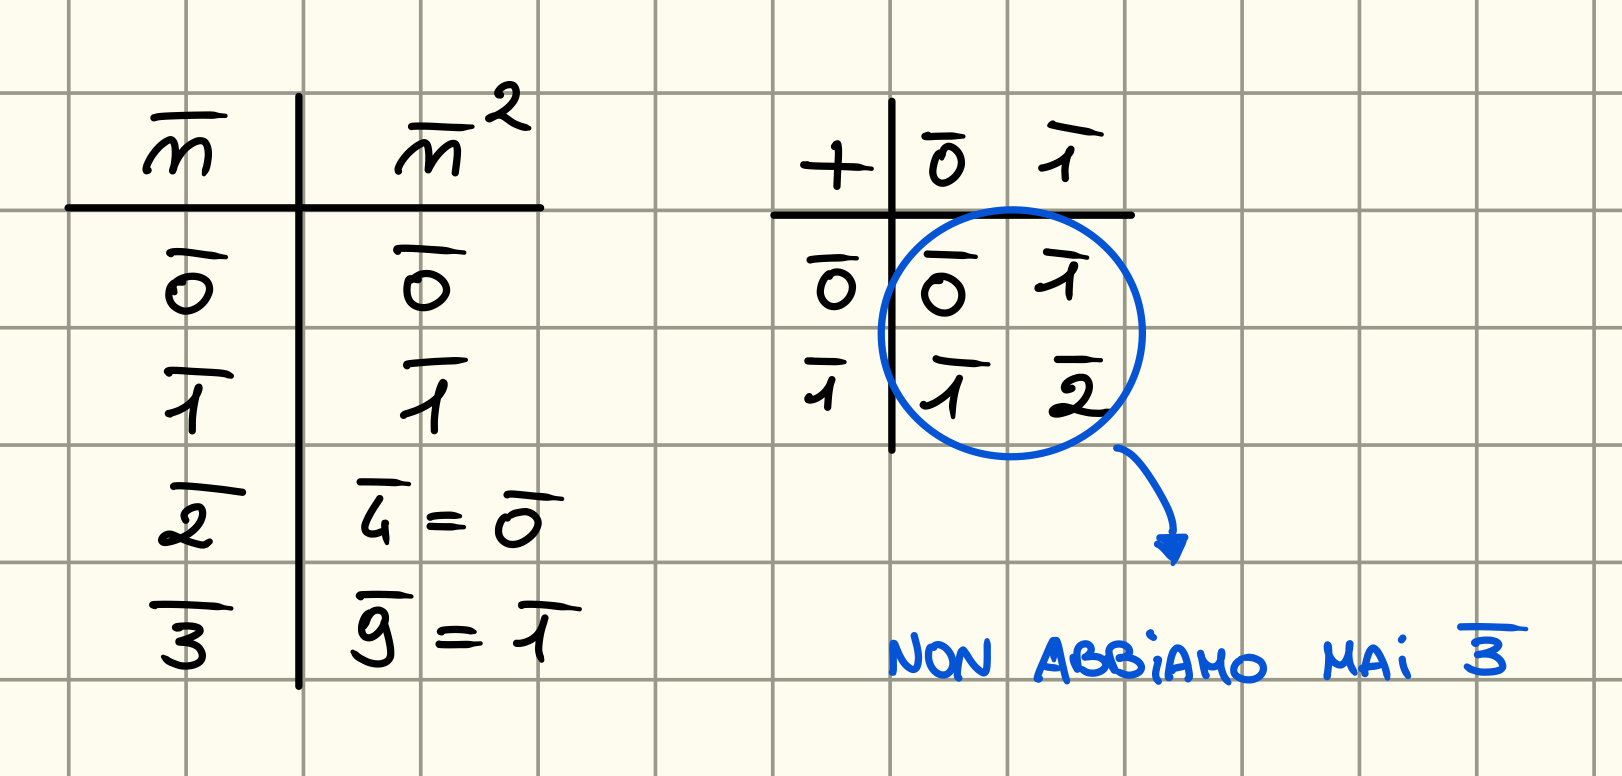 n̅ n̅²
0̅ 0̅
1̅ 1̅
2̅ 4̅ = 0̅
3̅ 9̅ = 1̅
+ 0̅ 1̅
0̅ 0̅ 1̅
1̅ 1̅ 2̅
NON ABBiAMO MAi 3̅